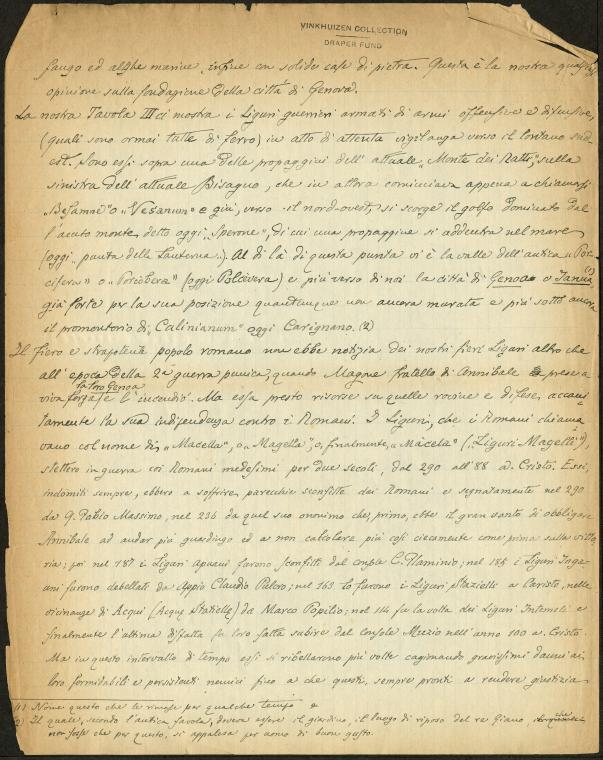 VINKHUIZEN COLLECTION
DRAPER FUND
fango ed alghe marine, infine con solide case di pietra. Questa è la nostra
opinione sulla fondazione della città di Genova.
La nostra Tavola III ci mostra i Liguri guerrieri armati di armi offensive e difensive,
(quali sono ormai tutte di ferro) in atto di attenta vigilanza verso il lontano sud-
est. Sono essi sopra una delle propaggini dell'attuale "Monte dei Ratti," sulla
sinistra dell'attuale Bisagno, che in allora cominciava appena a chiamarsi
"o "Vesanum" e giù, verso il nord-ovest, si scorge il golfo dominato dal
l'acuto monte, detto oggi "Sperone", di cui una propaggine si addentra nel mare
(oggi "punta della Lanterna"). Al di là di questa punta vi è la valle dell'antica "Por-
cifera" o "Porcobera" (oggi Polcevera) e più verso di noi la città di Genoa o Janua (1)
già forte per la sua posizione quantunque non ancora murata e più sotto ancora
il promontorio di "Calinianum" oggi Carignano. (2)
Il fiero e strapotente popolo romano non ebbe notizia dei nostri fieri Liguri altro che
all'epoca della 2a guerra punica, quando Magone fratello di Annibale prese a
viva forza la loro Genoa e l'incendiò. Ma essa presto risorse su quelle rovine e difese, accani
tamente la sua indipendenza contro i Romani. I Liguri, che i Romani chiama
vano col nome di "Macella", o "Magella", o, finalmente, "Màcela" ("Liguri Magelli"),
stettero in guerra coi Romani medesimi per due secoli, dal 290 all'88 a. Cristo. Essi,
indomiti sempre, ebbero a soffrire parecchie sconfitte dai Romani e segnatamente nel 290
da Q. Fabio Massimo, nel 236 da quel suo omonimo che, primo, ebbe il gran vanto di obbligare
Annibale ad andar più guardingo ed a non calcolare più così ciecamente come prima sulla vitto
ria; poi nel 187 i Liguri apuani furono sconfitti dal console C. Flaminio; nel 185 i Liguri Inga-
uni furono debellati da Appio Claudio Pulcro; nel 163 lo furono i Liguri Stazielli a Caristo, nelle
vicinanze di Acqui (Acque Statielle) da Marco Popilio; nel 114 fu la volta dei Liguri Intemeli e
finalmente l'ultima disfatta fu loro fatta subire dal console Muzio nell'anno 100 a. Cristo.
Ma in questo intervallo di tempo essi si ribellarono più volte cagionando gravissimi danni ai
loro formidabili e persistenti nemici fino a che questi, sempre pronti a rendere giustizia
(1) Nome questo che le rimase per qualche tempo
(2) Il quale, secondo l'antica favola, doveva essere il giardino, il luogo di riposo del re Giano, che
non fosse che per questo, si appalesa per uomo di buon gusto.